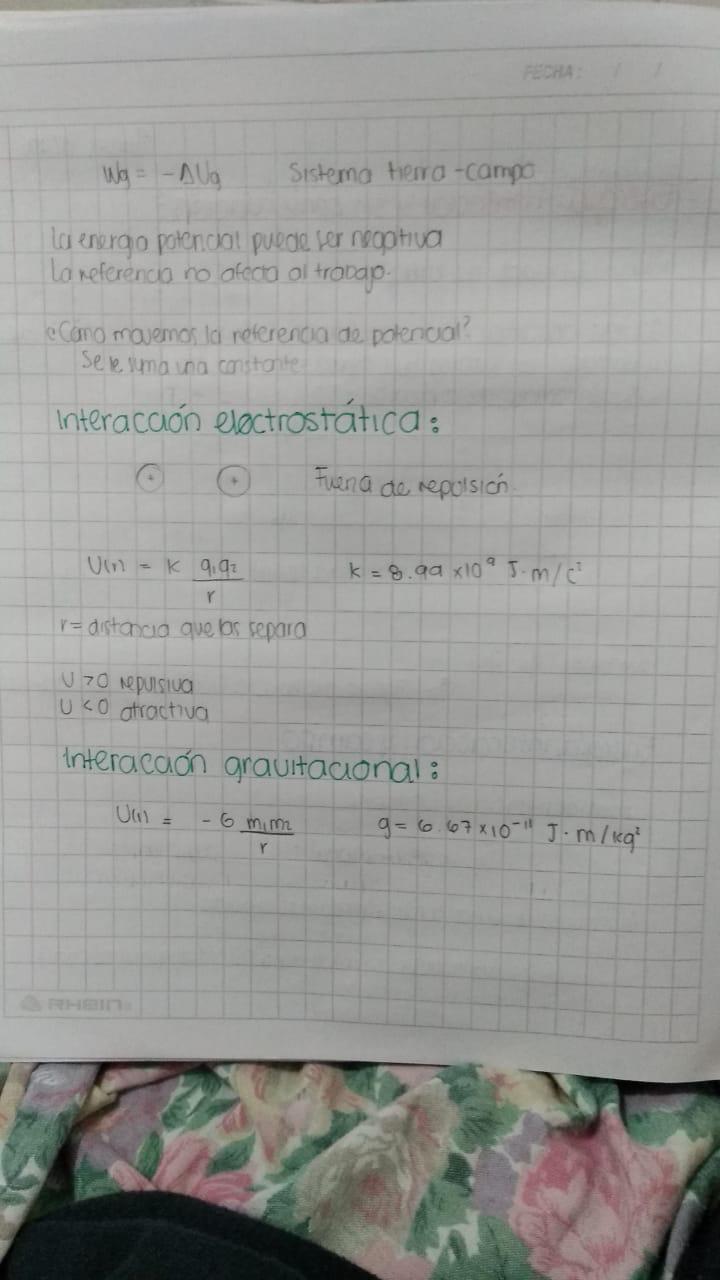 FECHA: / /
Wg = -ΔUg Sistema tierra-campo
La energia potencial puede ser negativa
La referencia no afecta al trabajo.
¿Cómo movemos la referencia de potencial?
Se le suma una constante
Interacción electrostática:
+ + Fuerza de repulsión.
U(r) = k q₁q₂/r k = 8.99 x10⁹ J·m/C²
r = distancia que los separa
U > 0 repulsiva
U < 0 atractiva
Interacción gravitacional:
U(r) = -G m₁m₂/r g = 6.67 x10⁻¹¹ J·m/kg²
RHEIN